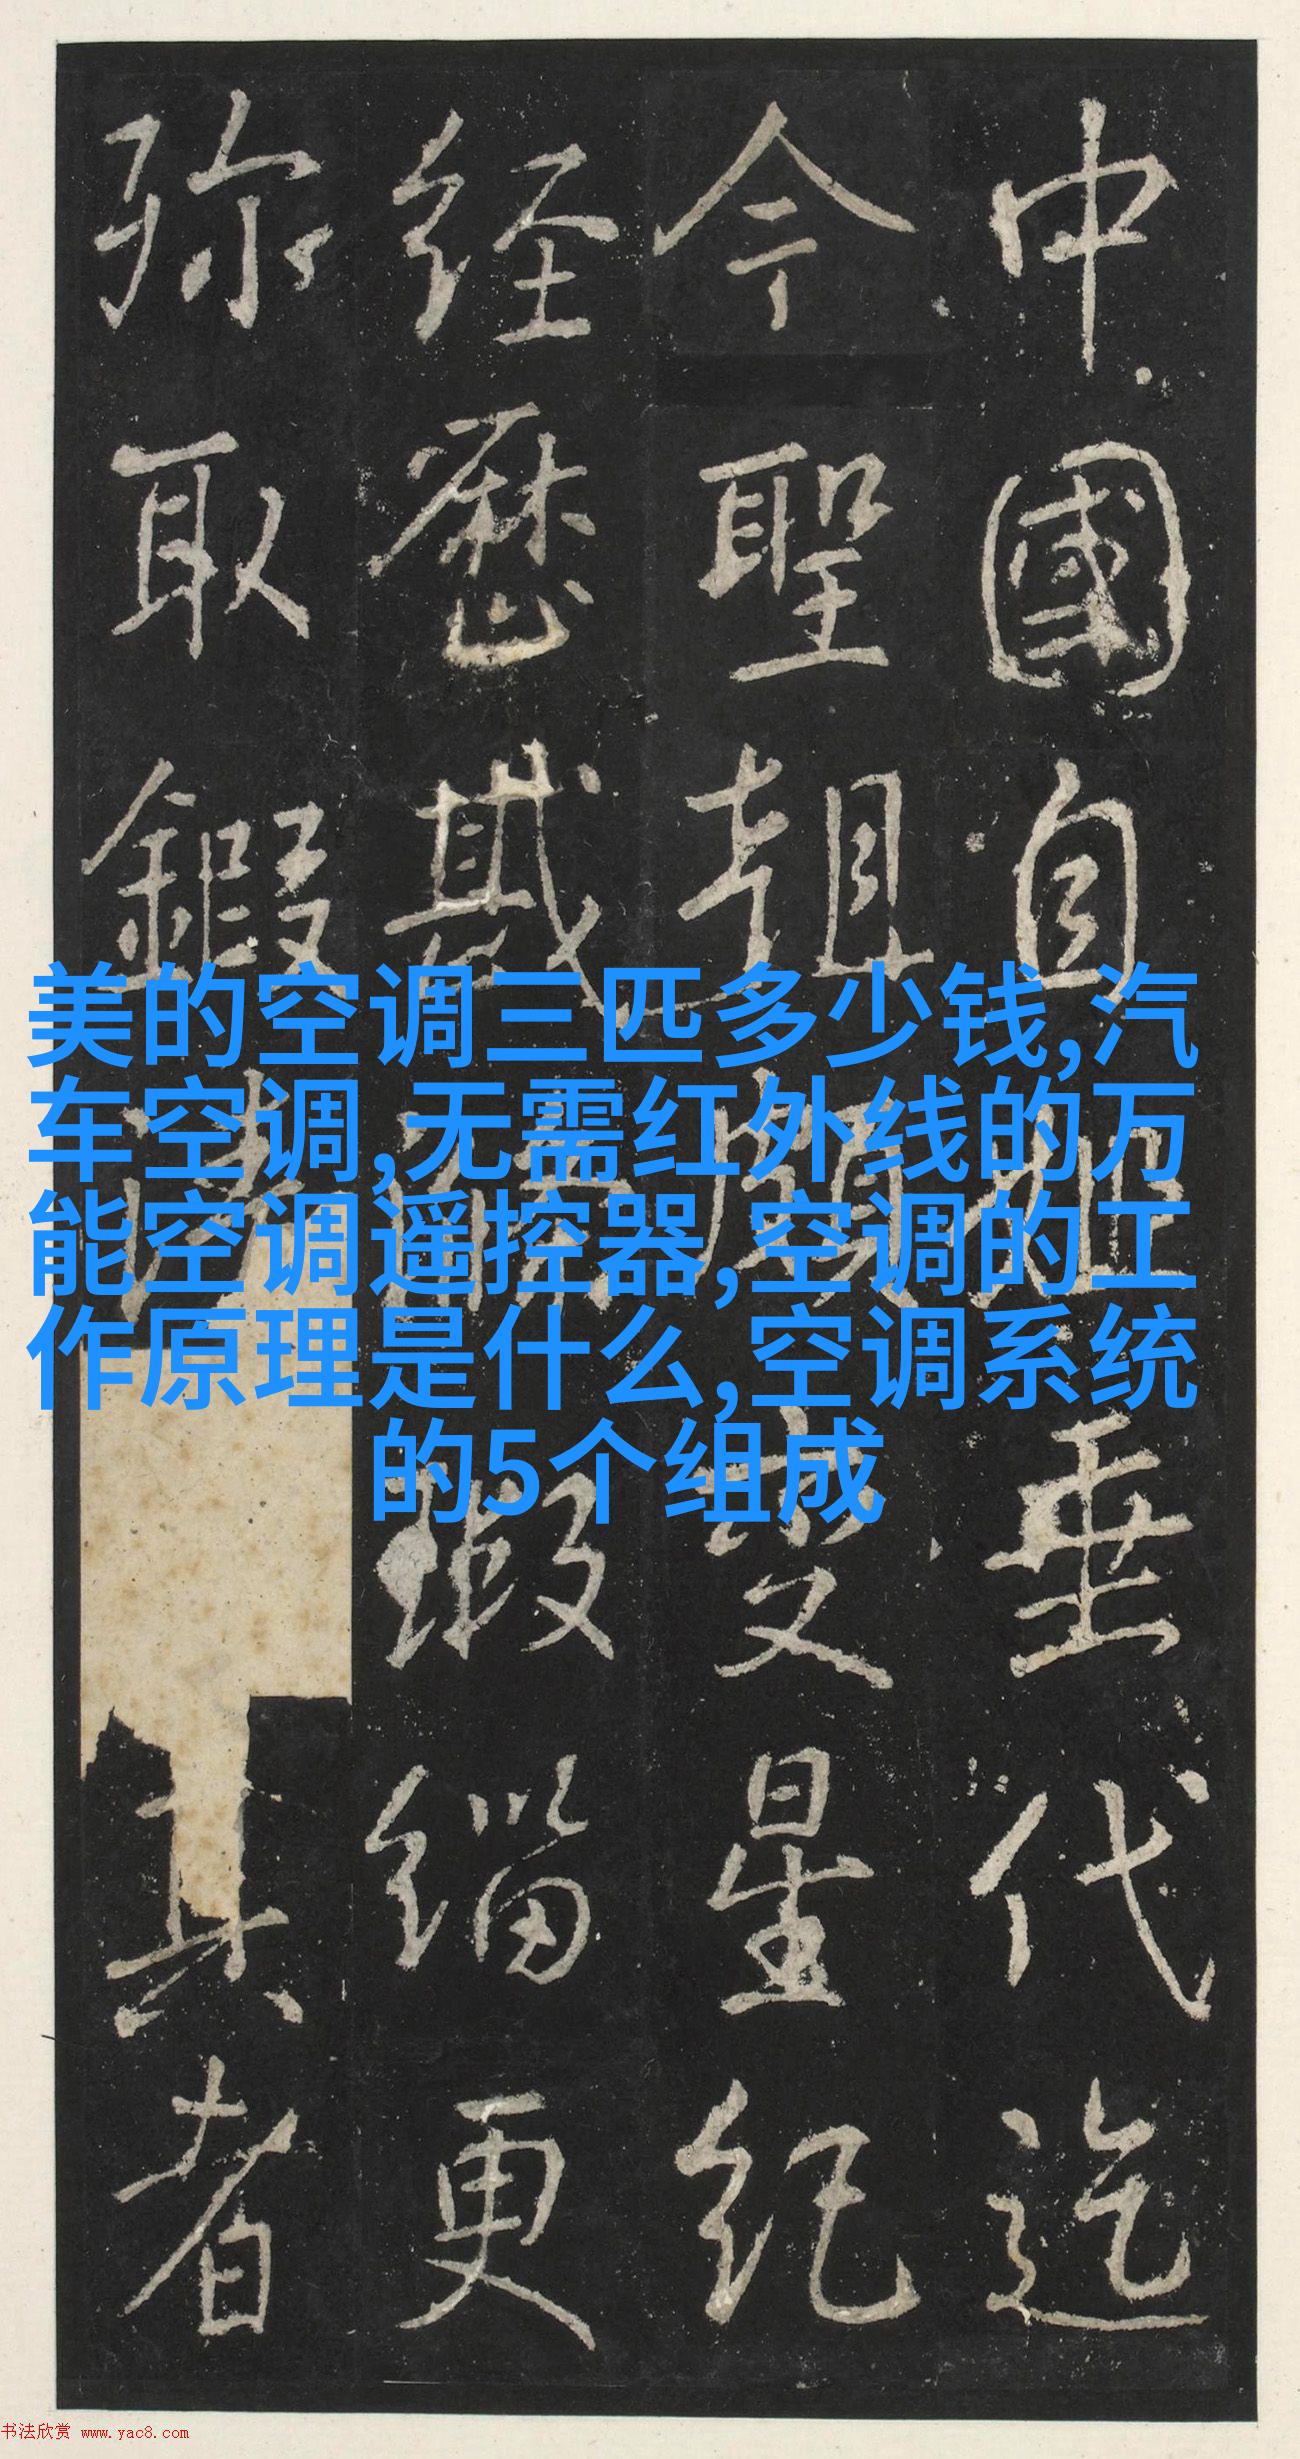 中國自垂代迄
今聖朝星紀
经歷緇更
弥取鍜真者
美的空调三匹多少钱,汽
车空调,无需红外线的万
能空调遥控器,空调的工
作原理是什么,空调系统
的5个组成
书法欣赏 www.yac8.com